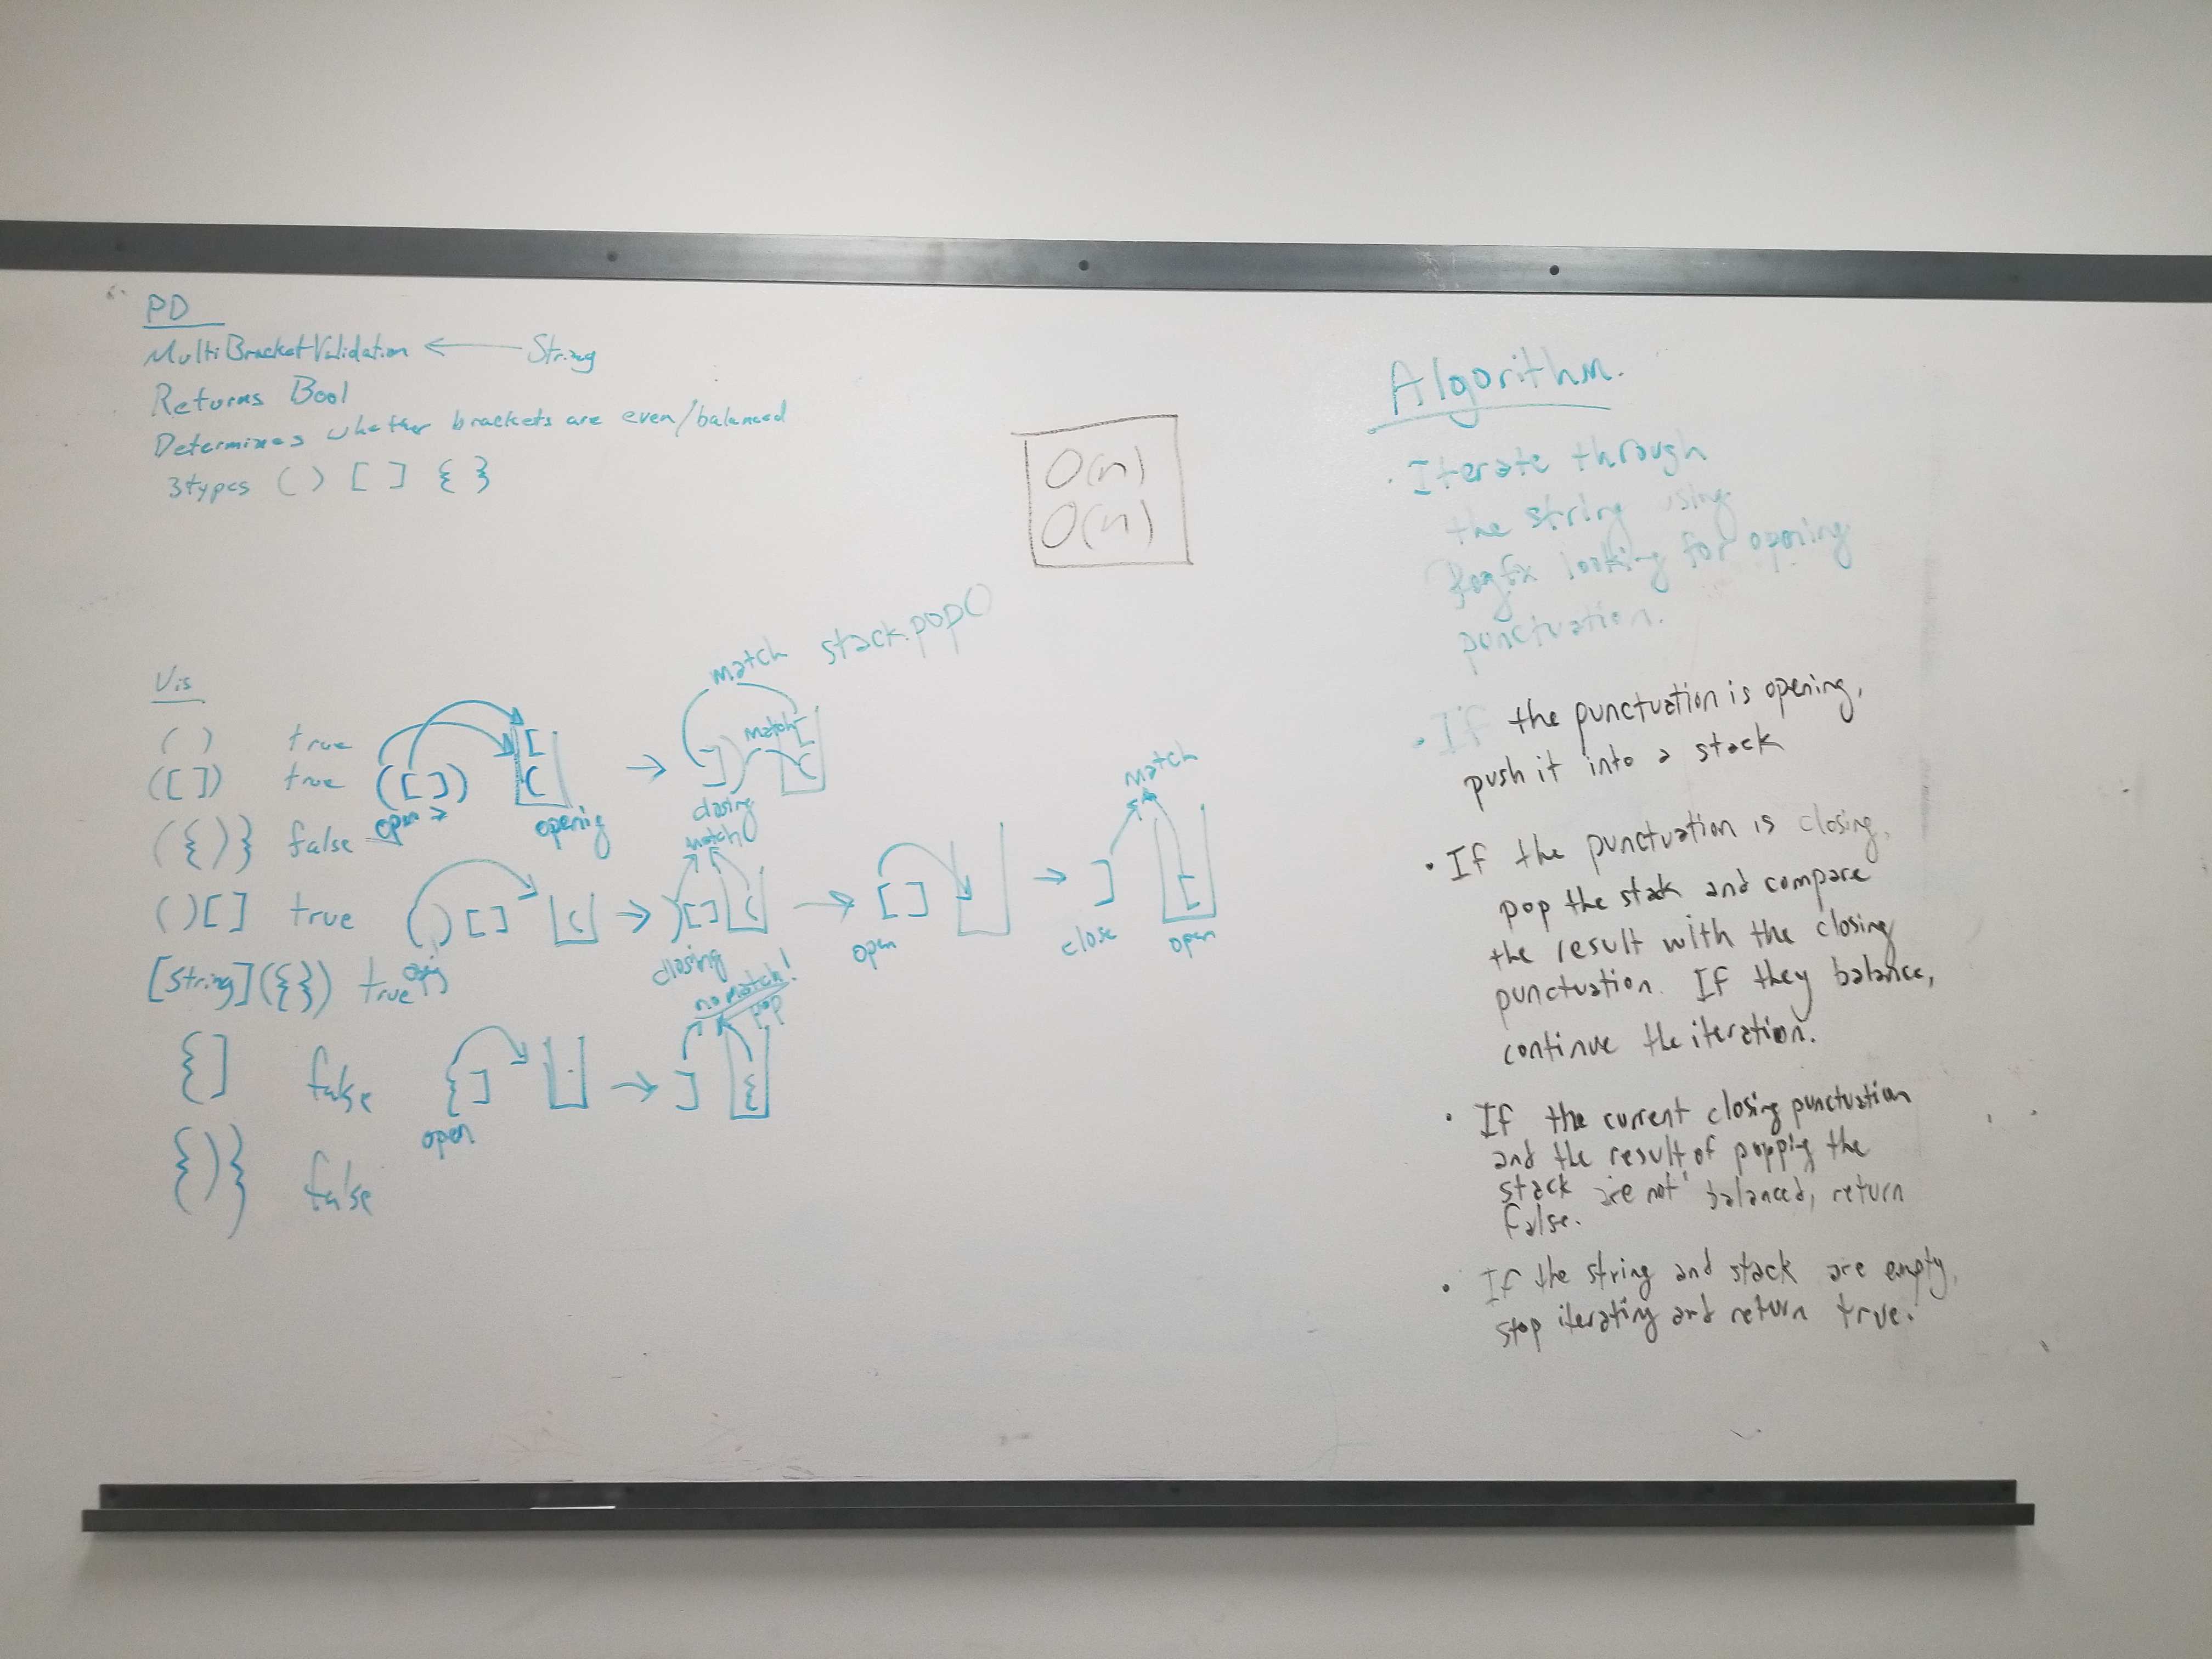 PD
MultiBracketValidation ← String
Returns Bool
Determines whether brackets are even/balanced
3types ( ) [ ] { }
O(n)
O(n)
Vis
( ) true
([]) true
({)} false
()[] true
[String]({}) true
{] false
{)} false
match stack.pop()
([])
open
[
(
opening
])
match
[
(
closing
match
()[]
(
)[]
(
closing
[]
open
]
close
match
[
open
{]
open
no match!
pop
]
{
Algorithm.
· Iterate through
the string using
looking for opening
punctuation.
· If the punctuation is opening,
push it into a stack
· If the punctuation is closing,
pop the stak and compare
the result with the closing
punctuation. If they balance,
continue the iteration.
· If the current closing punctuation
and the result of popping the
stack are not balanced, return
false.
· If the string and stack are empty,
stop iterating and return true.